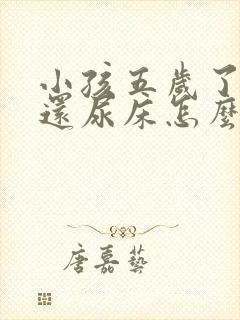 小孩五歲了
還尿床怎麼
唐嘉藝